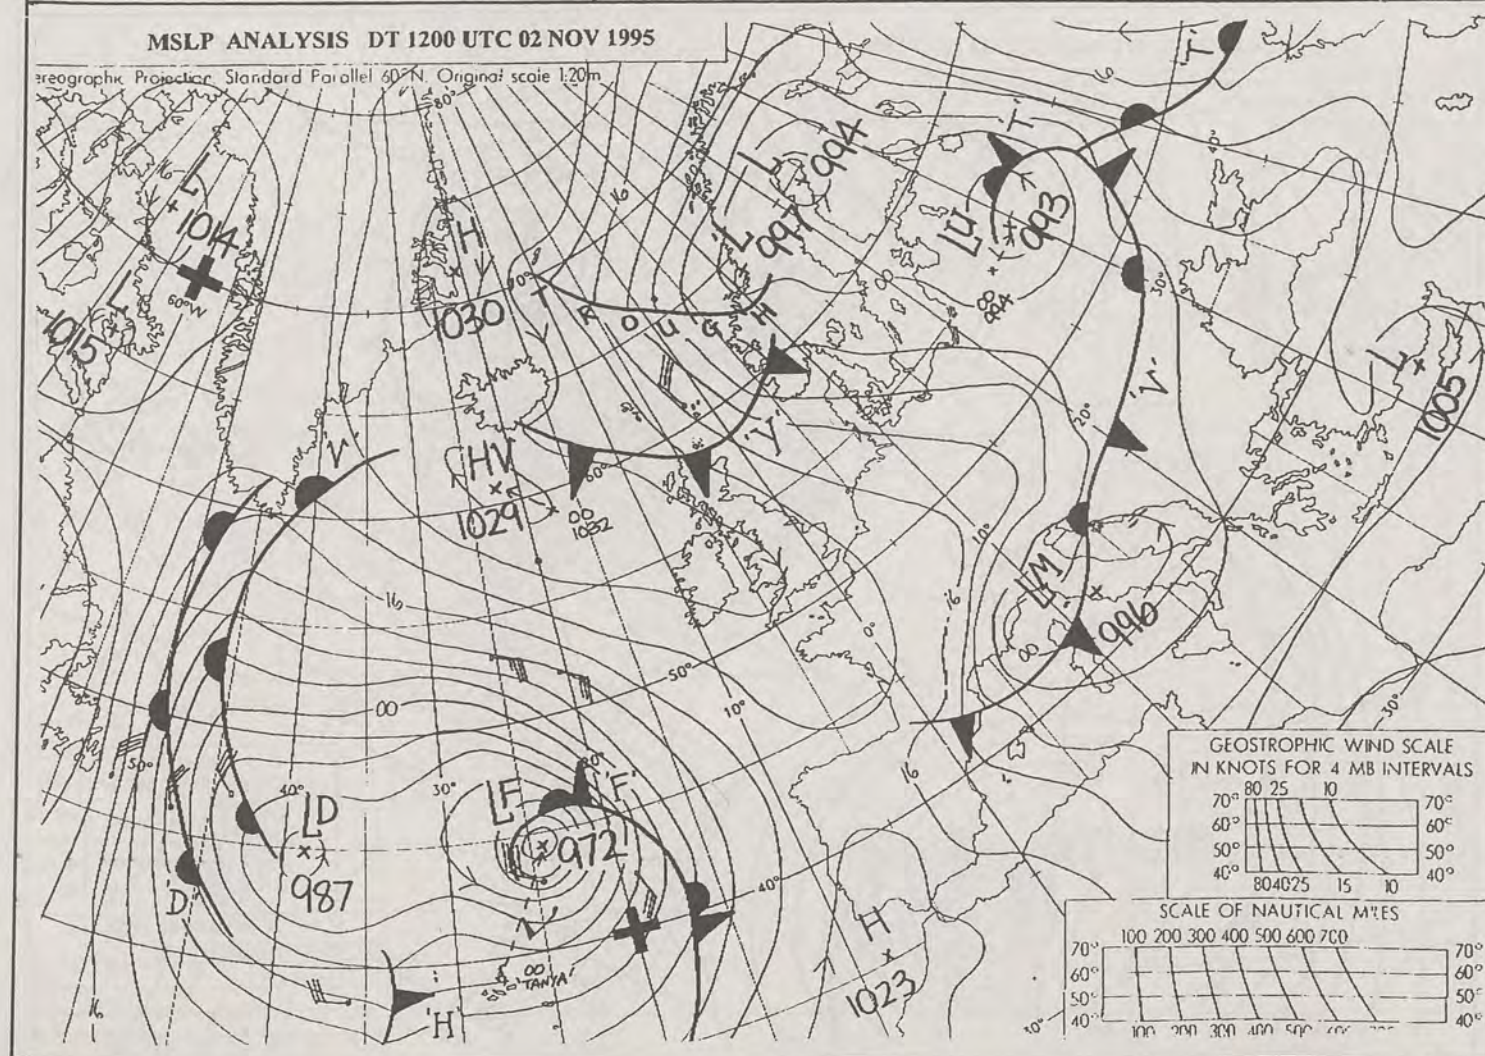 MSLP ANALYSIS DT 1200 UTC 02 NOV 1995
ereographic Projection, Standard Parallel 60°N. Original scale 1:20m
80°
16
16
16
'T'
'T'
L
1014
60°W
L
1015
H
1030
70°
L
994
L
997
LU
993
00
994
40°
30°
T R O U G H
'V'
'V'
'V'
L
1005
20°
HV
1029
00
1032
60°
16
50°
10°
0°
10°
16
LM
996
00
00
50°
40°
30°
LD
987
'D'
LF
972
'F'
20°
40°
L
00
'TANYA'
'H'
16
H
1023
16
30°
GEOSTROPHIC WIND SCALE
IN KNOTS FOR 4 MB INTERVALS
80 25 10
70° 70°
60° 60°
50° 50°
40° 40°
80 40 25 15 10
SCALE OF NAUTICAL MILES
100 200 300 400 500 600 700
70° 70°
60° 60°
50° 50°
40° 40°
100 200 300 400 500